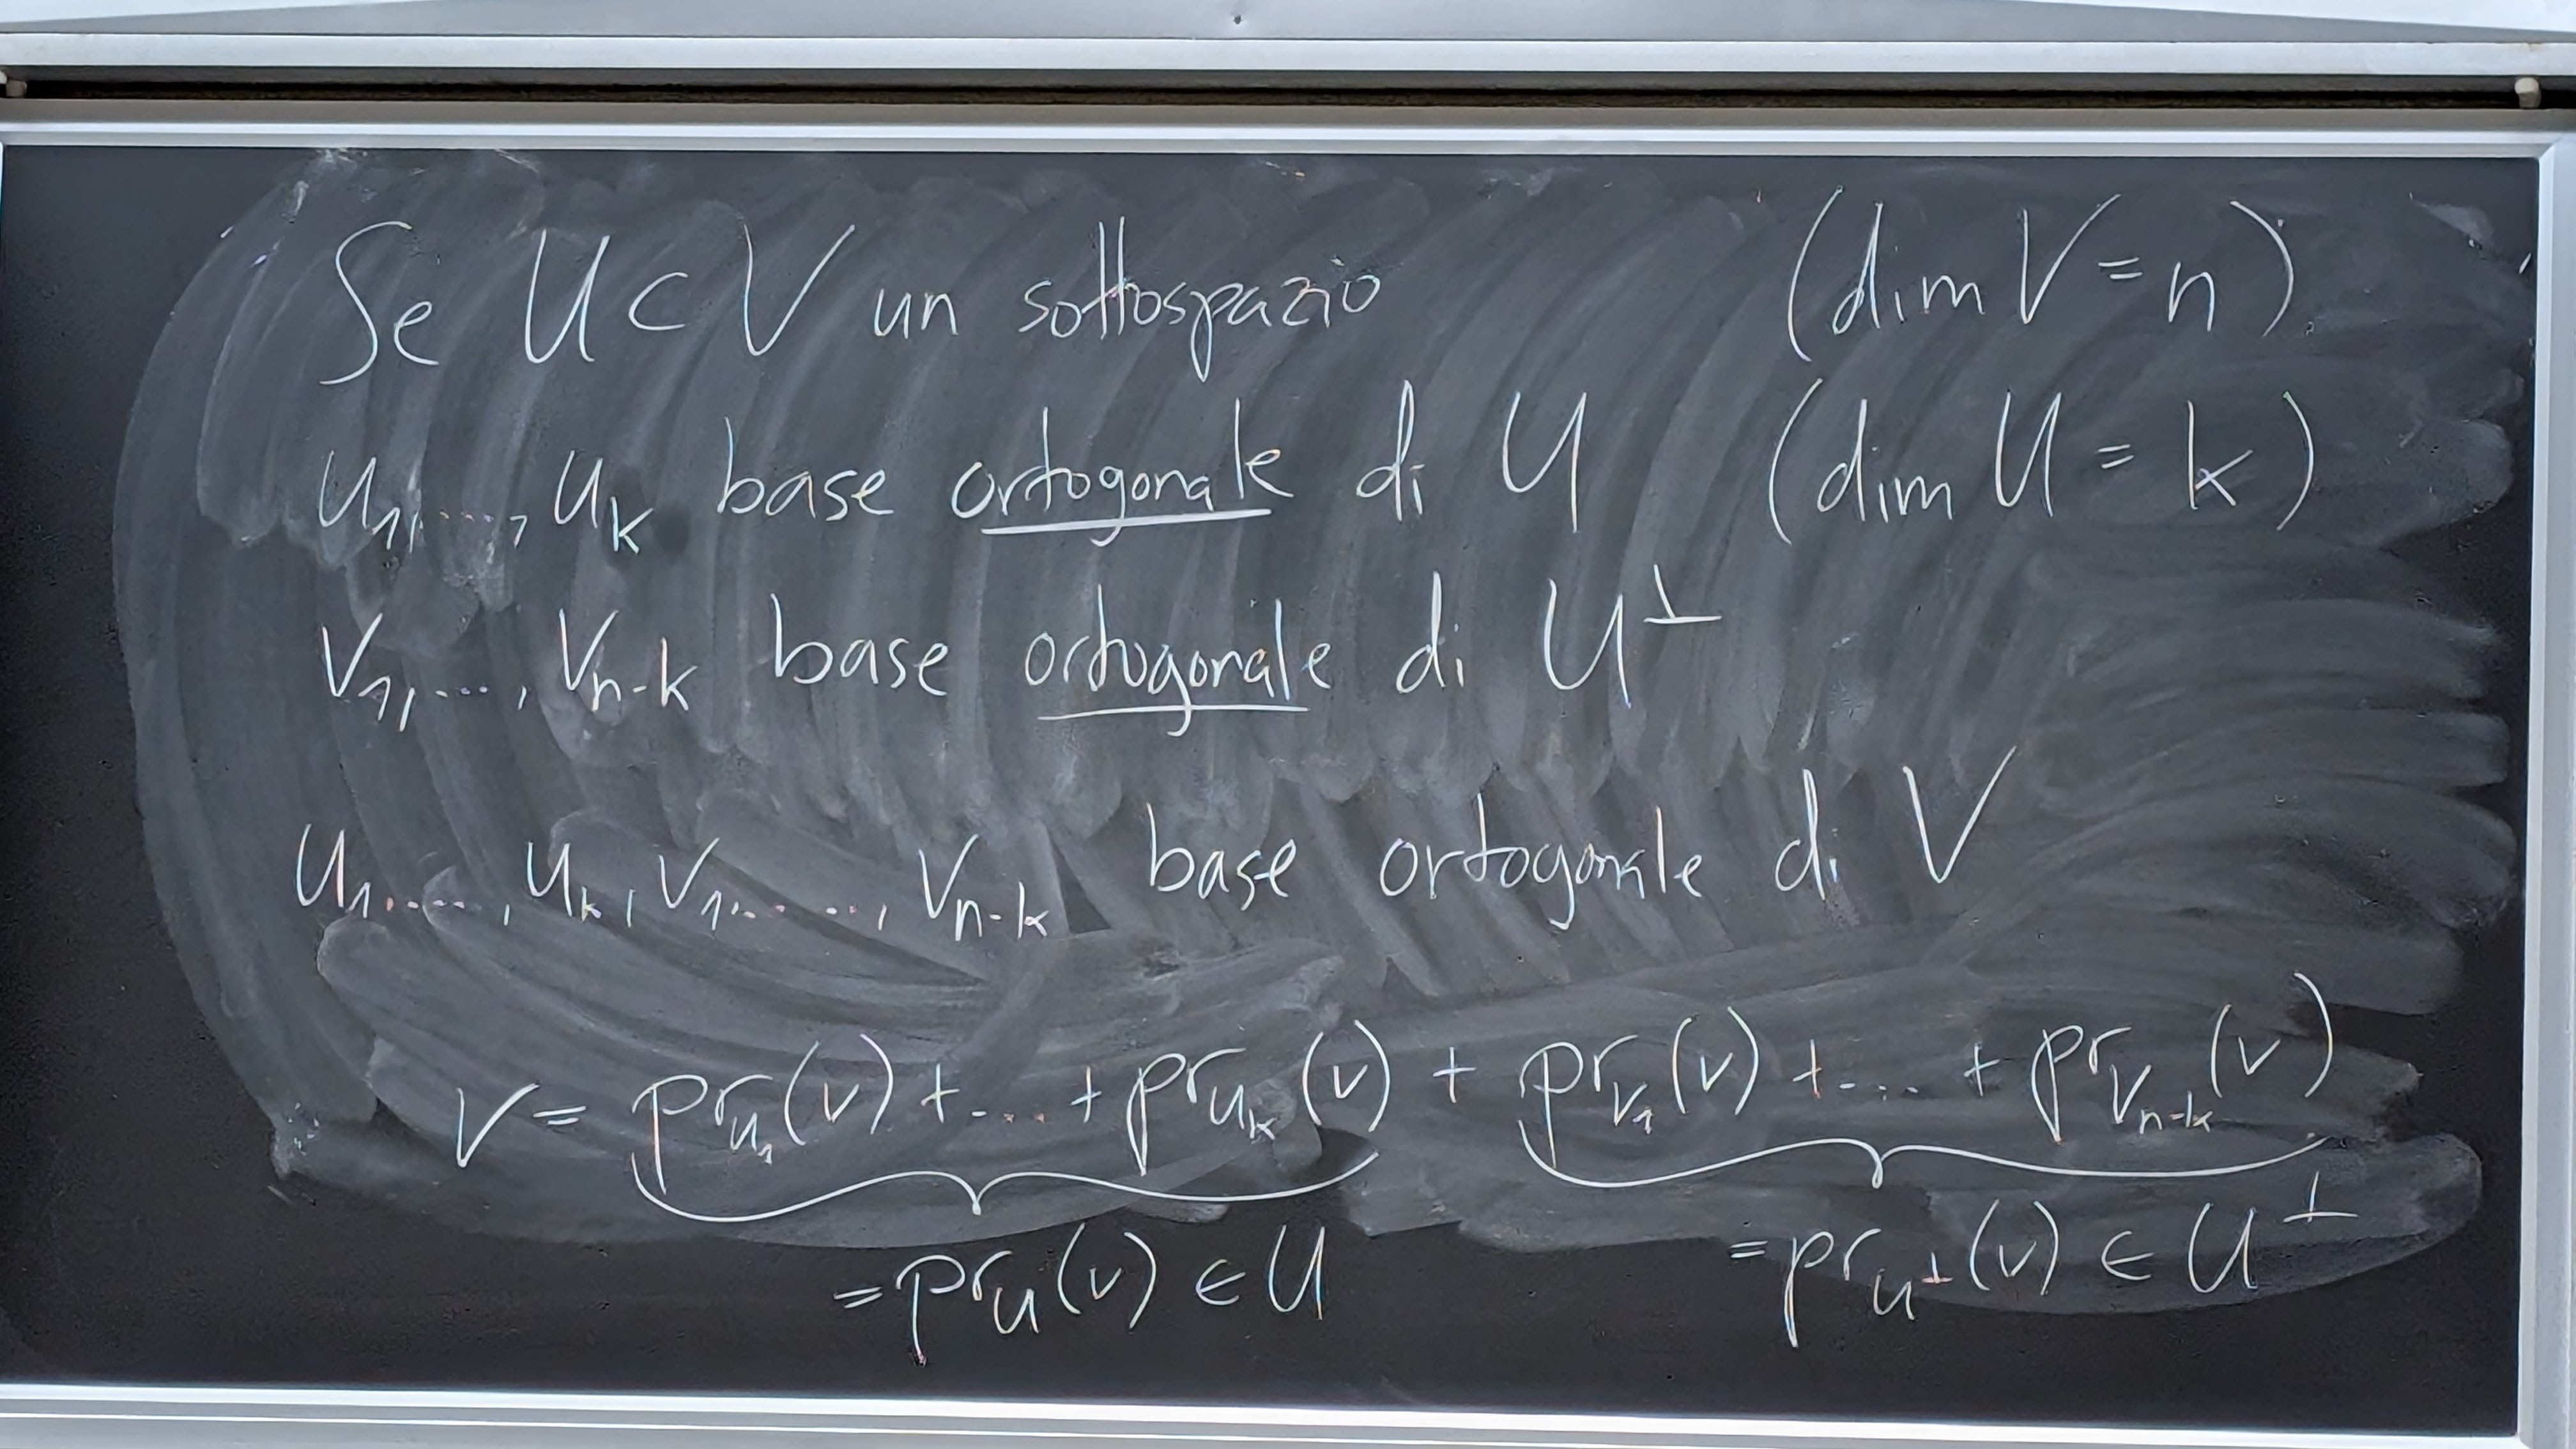 Se U ⊂ V un sottospazio (dim V = n)
u₁, ..., uₖ base ortogonale di U (dim U = k)
v₁, ..., vₙ₋ₖ base ortogonale di U^⊥
u₁, ..., uₖ, v₁, ..., vₙ₋ₖ base ortogonale di V
v = pr_{u₁}(v) + ... + pr_{uₖ}(v) + pr_{v₁}(v) + ... + pr_{vₙ₋ₖ}(v)
= pr_U(v) ∈ U = pr_{U^⊥}(v) ∈ U^⊥